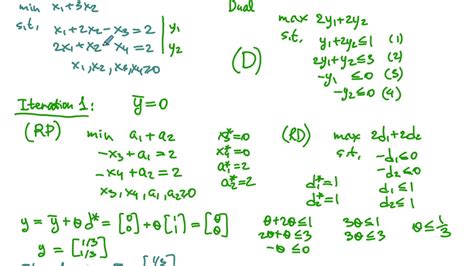 min x₁+3x₂
s.t. x₁+2x₂-x₃=2 | y₁
2x₁+x₂-x₄=2 | y₂
x₁,x₂,x₃,x₄≥0
Dual
(D)
max 2y₁+2y₂
s.t. y₁+2y₂≤1 (1)
2y₁+y₂≤3 (2)
-y₁ ≤0 (3)
-y₂≤0 (4)
Iteration 1: ȳ=0
(RP) min a₁+a₂
-x₃+a₁=2
-x₄+a₂=2
x₃,x₄,a₁,a₂≥0
x₃*=0
x₄*=0
a₁*=2
a₂*=2
(RD) max 2d₁+2d₂
s.t. -d₁≤0
-d₂≤0
d₁≤1
d₂≤1
d₁*=1
d₂*=1
y=ȳ+θd*=[0 0]+θ[1 1]=[θ θ]
y=[1/3 1/3]
θ+2θ≤1 3θ≤1 θ≤1/3
2θ+θ≤3 3θ≤3
-θ≤0